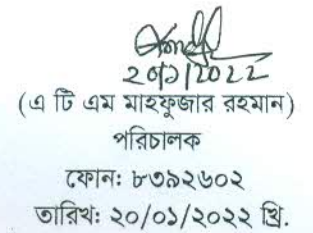 20/1/2022
(এ টি এম মাহফুজার রহমান)
পরিচালক
ফোন: ৮৩৯২৬০২
তারিখ: ২০/০১/২০২২ খ্রি.